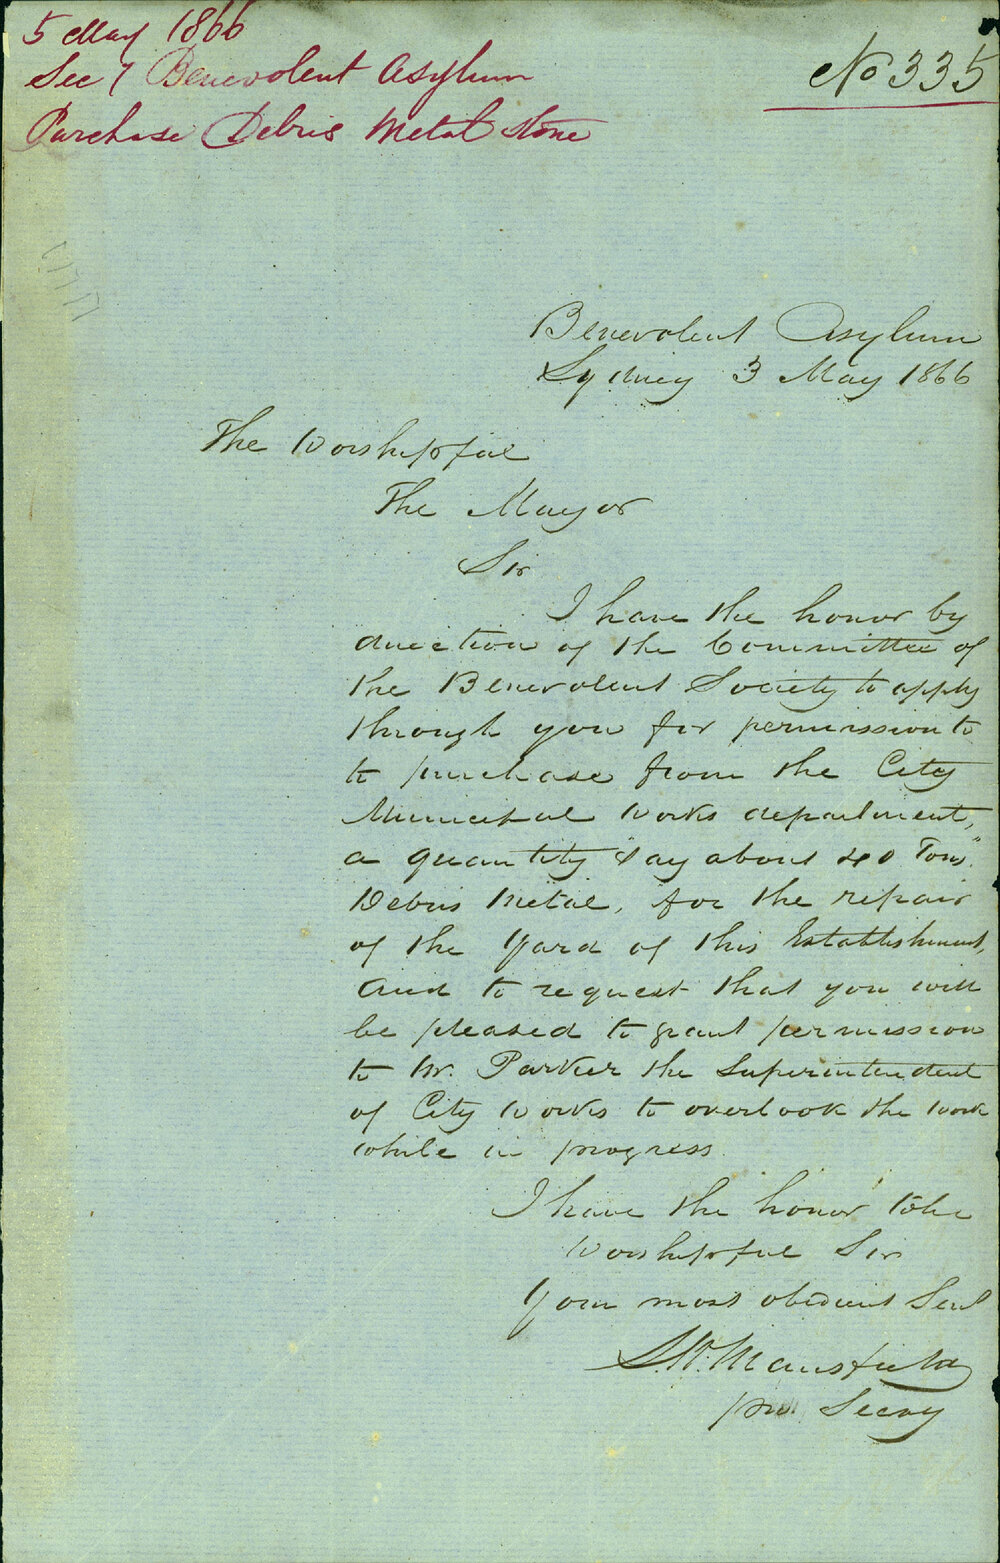 5 May 1866
Secy Benevolent Asylum
Purchase Debris Metal Stone
No 335
Benevolent Asylum
Sydney 3 May 1866
The Worshipful
The Mayor
Sir
I have the honor by
direction of the Committee of
the Benevolent Society to apply
through you for permission to
to purchase from the City
Municipal Works department,
a quantity "say about 40 Tons"
Debris Metal, for the repair
of the Yard of this Establishment,
and to request that you will
be pleased to grant permission
to Mr. Parker the Superintendent
of City Works to overlook the work
while in progress.
I have the honor to be
Worshipful Sir
Your most obedient Servt
Mansfield
pro Secry